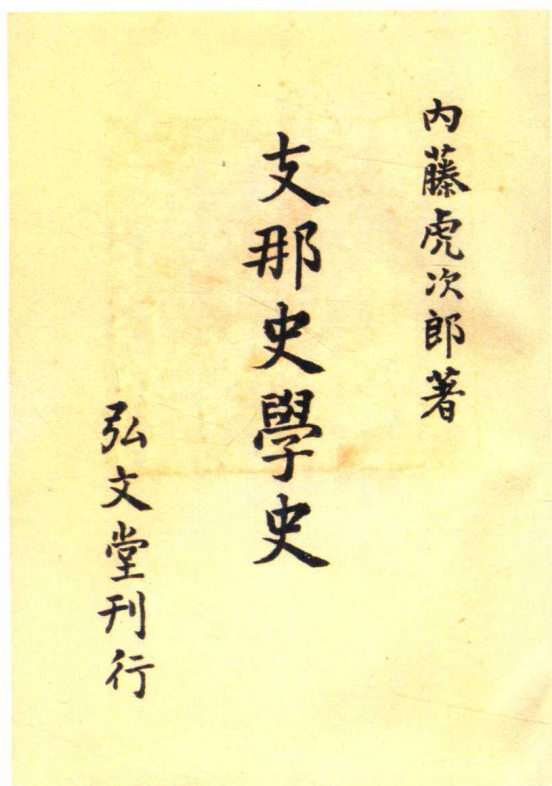 内藤虎次郎著
支那史學史
弘文堂刊行